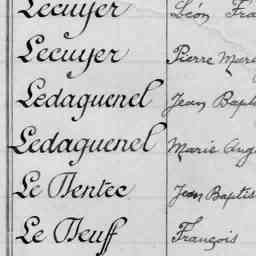 Lecuyer Léon Fra
Lecuyer Pierre Mare
Ledaguenel Jean Bapt
Ledaguenel Marie Aug
Le Dentec Jean Baptis
Le Deuff François